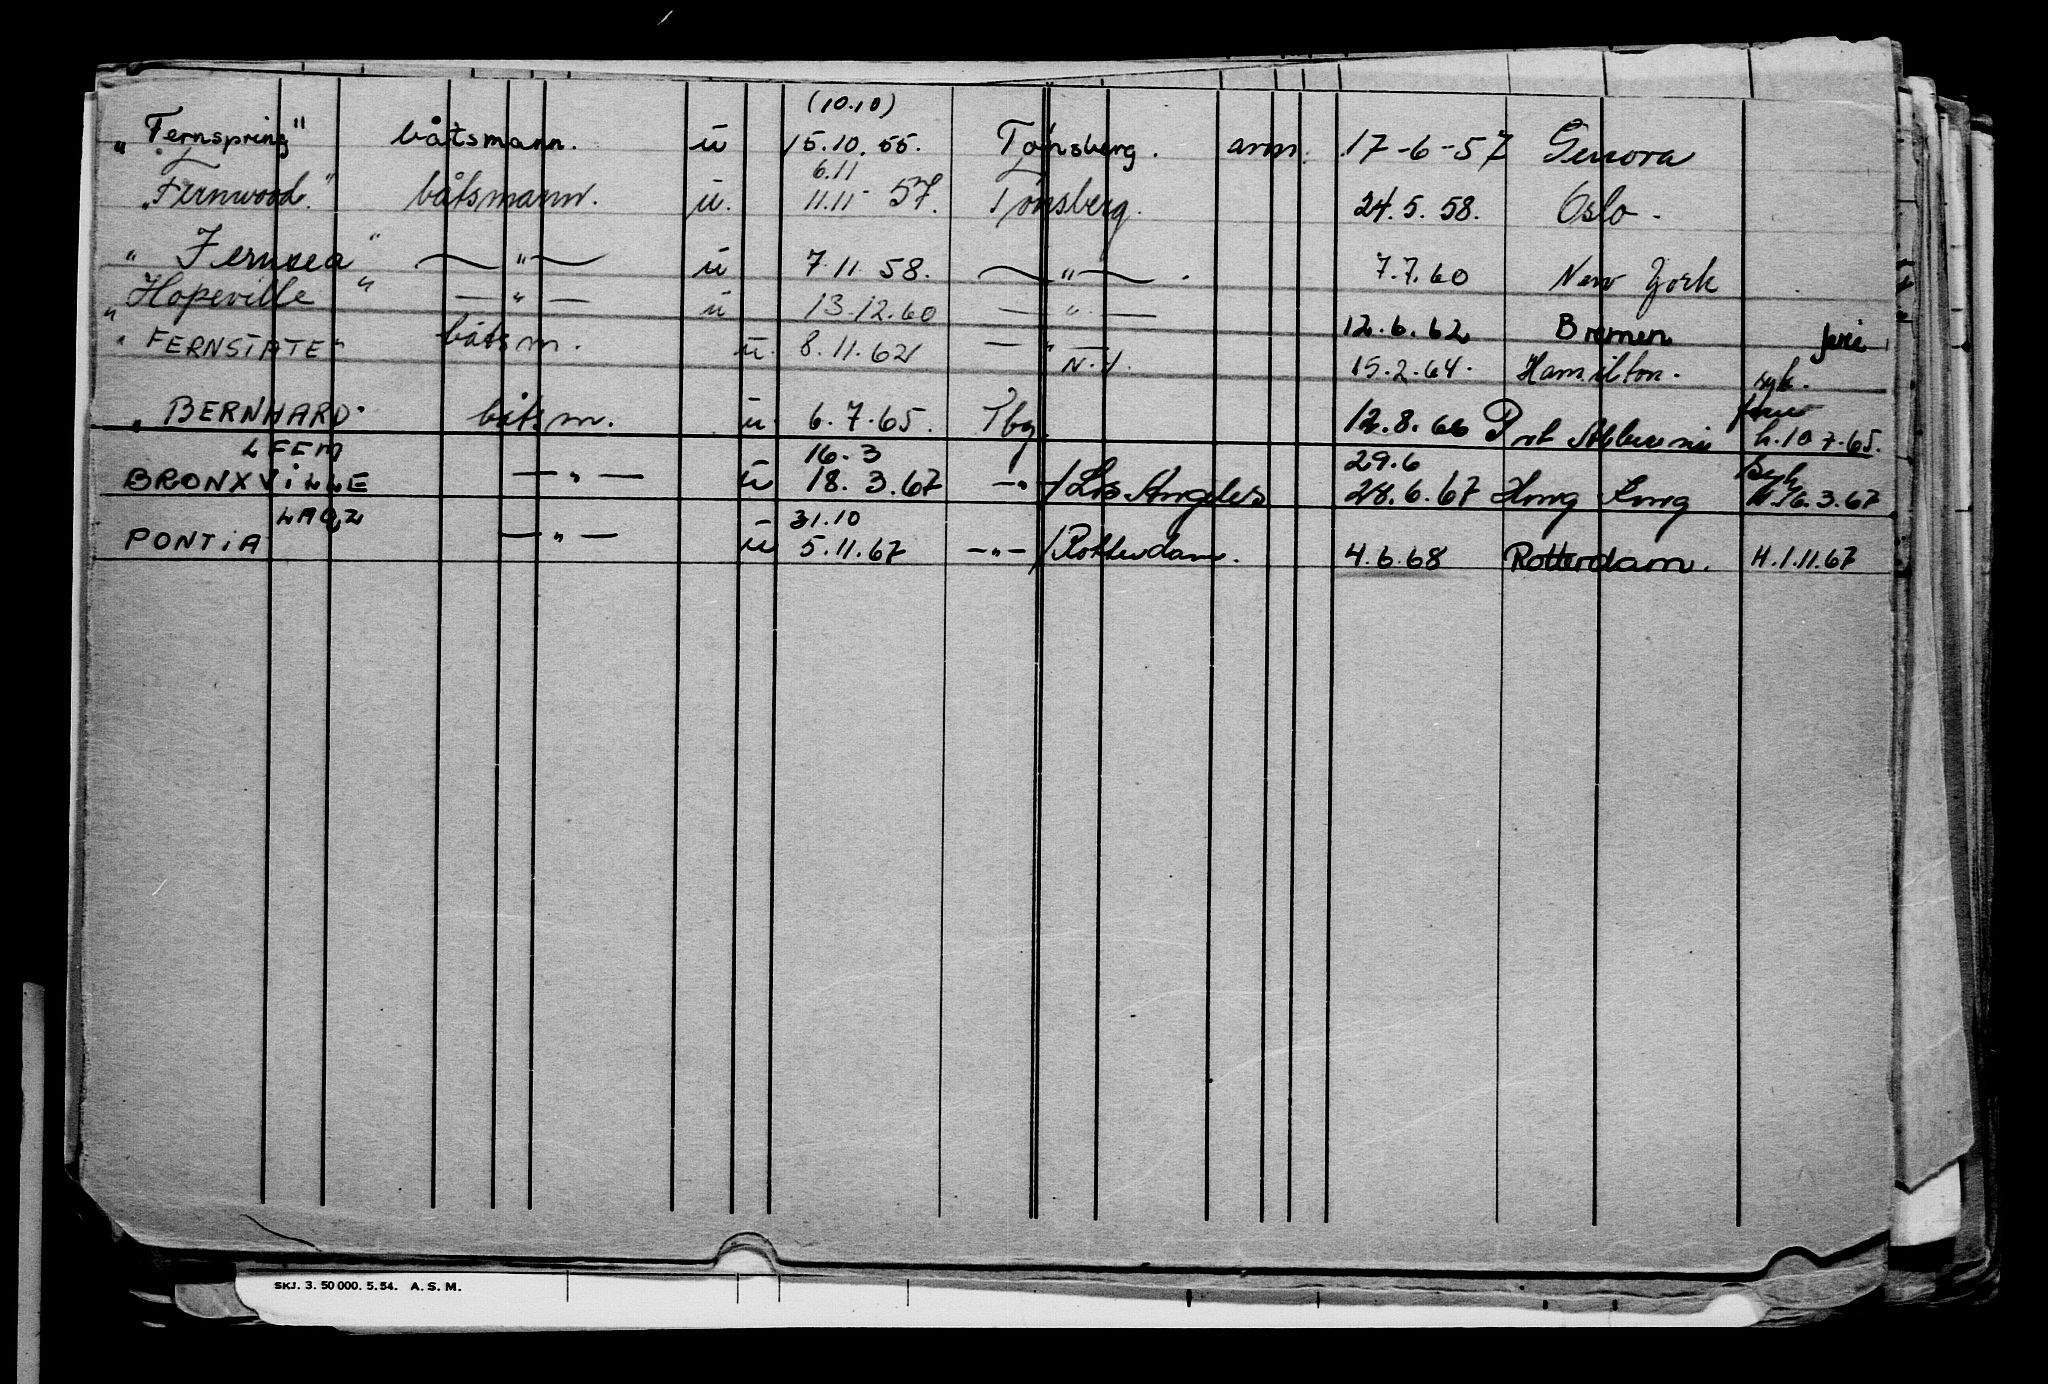 (10.10)
„Fernspring" båtsmann. u 15.10.55. Tønsberg. 17-6-57 Genova
6.11
„Fernwood." båtsmann. u. 11.11 57. Tønsberg. 24.5.58. Oslo.
„Fernsea" — " — u 7.11 58. — " — . 7.7.60 New York
„Hopeville" — " — u 13.12.60 — " — 12.6.62 Bremen
„FERNSTATE" båtsm. u. 8.11.62 — " — N.Y. 15.2.64. Hamilton. syk.
„BERNHARD båtsm. u. 6.7.65. Tbg. 12.8.66 h.10 7.65.
LEEM 16.3 29.6 Syk
BRONXVILLE — " — u 18.3.67 — " — / Los Angeles 28.6.67 Hong Kong H.16.3.67
LAQZ 31.10
PONTIA — " — u 5.11.67 — " — / Rotterdam. 4.6.68 Rotterdam. H.1.11.67
SKJ. 3. 50 000. 5. 54. A. S. M.